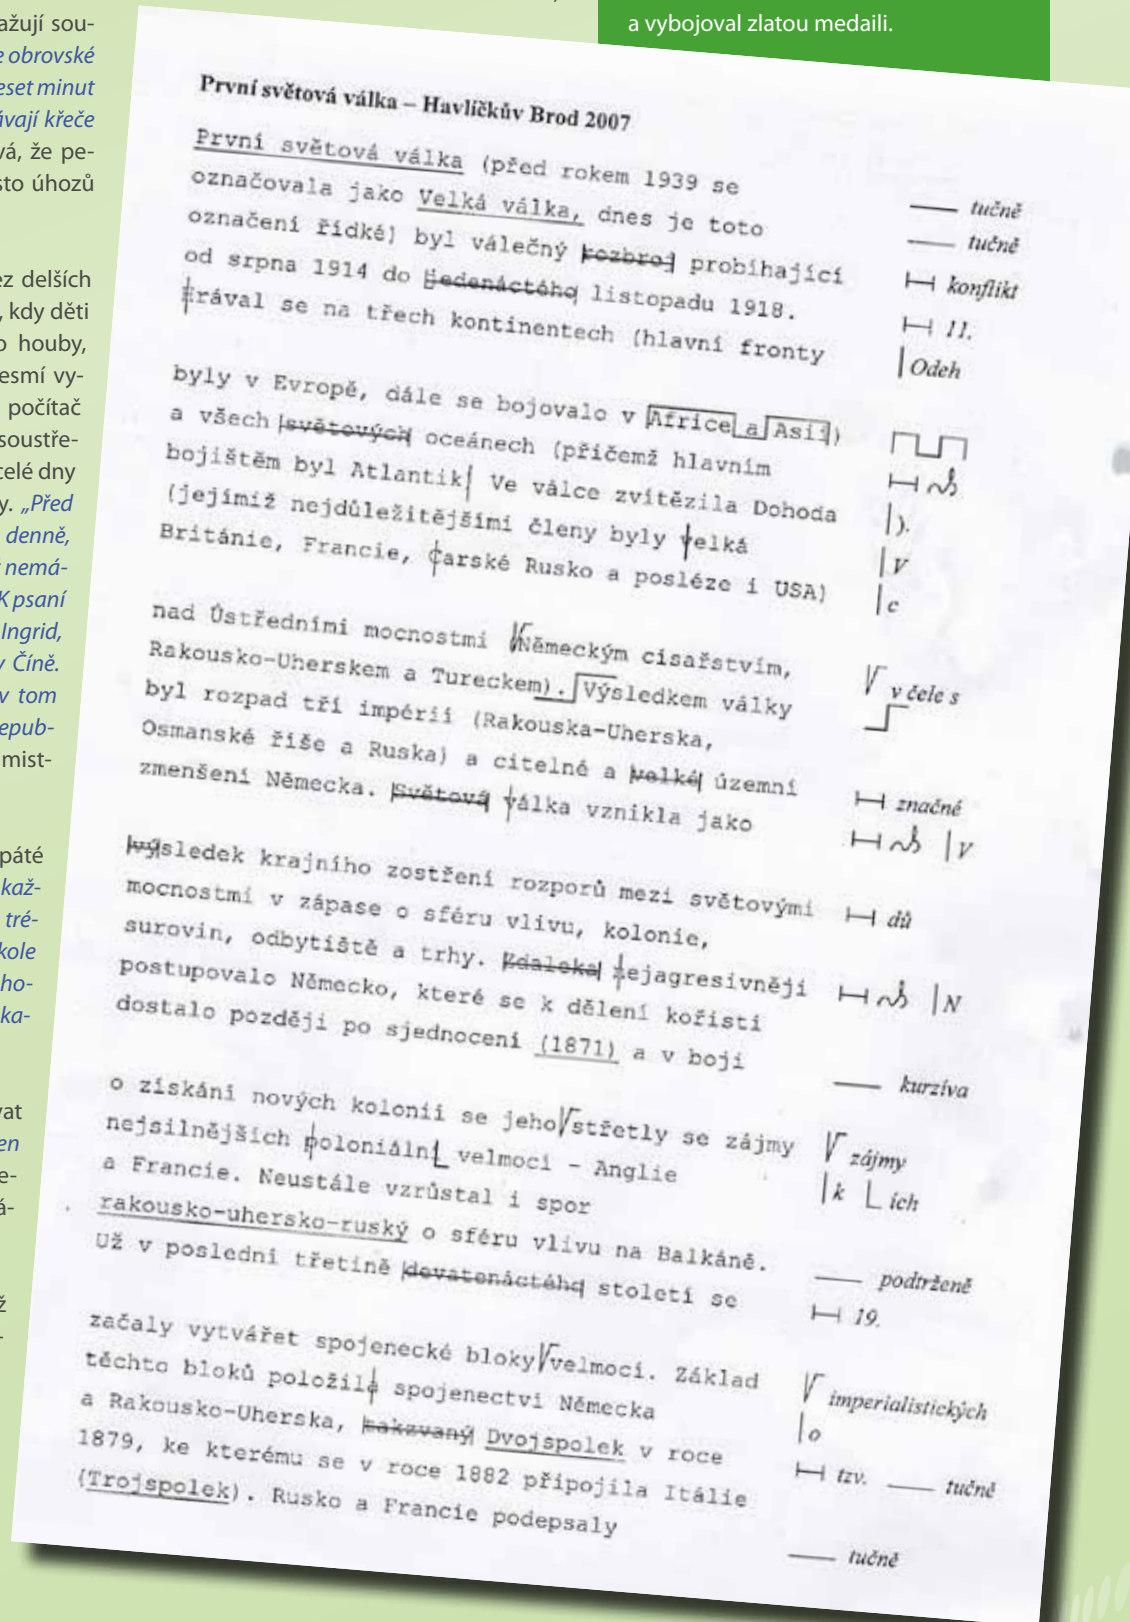 ažují sou-
e obrovské
eset minut
ávají křeče
vá, že pe-
sto úhozů
ez delších
, kdy děti
o houby,
esmí vy-
počítač
soustře-
celé dny
y. „Před
denně,
nemá-
K psaní
Ingrid,
v Číně.
v tom
epub-
mist-
páté
kaž-
tré-
kole
ho-
ka-
vat
en
e-
á-
ž
-
a vybojoval zlatou medaili.
První světová válka – Havlíčkův Brod 2007
První světová válka (před rokem 1939 se
označovala jako Velká válka, dnes je toto tučně
označení řídké) byl válečný rozbroj probíhající tučně
od srpna 1914 do jedenáctého listopadu 1918. konflikt
11.
rával se na třech kontinentech (hlavní fronty Odeh
byly v Evropě, dále se bojovalo v Africe a Asii)
a všech světových oceánech (přičemž hlavním
bojištěm byl Atlantik Ve válce zvítězila Dohoda
(jejímiž nejdůležitějšími členy byly velká ).
Británie, Francie, carské Rusko a posléze i USA) V
c
nad Ústředními mocnostmi Německým císařstvím,
Rakousko-Uherskem a Tureckem). Výsledkem války v čele s
byl rozpad tří impérií (Rakouska-Uherska,
Osmanské říše a Ruska) a citelné a velké územní
zmenšení Německa. Světová válka vznikla jako značné
V
výsledek krajního zostření rozporů mezi světovými dů
mocnostmi v zápase o sféru vlivu, kolonie,
surovin, odbytiště a trhy. Zdaleka nejagresivněji N
postupovalo Německo, které se k dělení kořisti
dostalo později po sjednocení (1871) a v boji kurzíva
o získání nových kolonií se jeho střetly se zájmy zájmy
nejsilnějších poloniální velmocí – Anglie k ích
a Francie. Neustále vzrůstal i spor
rakousko-uhersko-ruský o sféru vlivu na Balkáně. podtrženě
Už v poslední třetině devatenáctého století se 19.
začaly vytvářet spojenecké bloky velmocí. Základ imperialistických
těchto bloků položila spojenectví Německa o
a Rakousko-Uherska, takzvaný Dvojspolek v roce tzv. tučně
1879, ke kterému se v roce 1882 připojila Itálie
(Trojspolek). Rusko a Francie podepsaly tučně